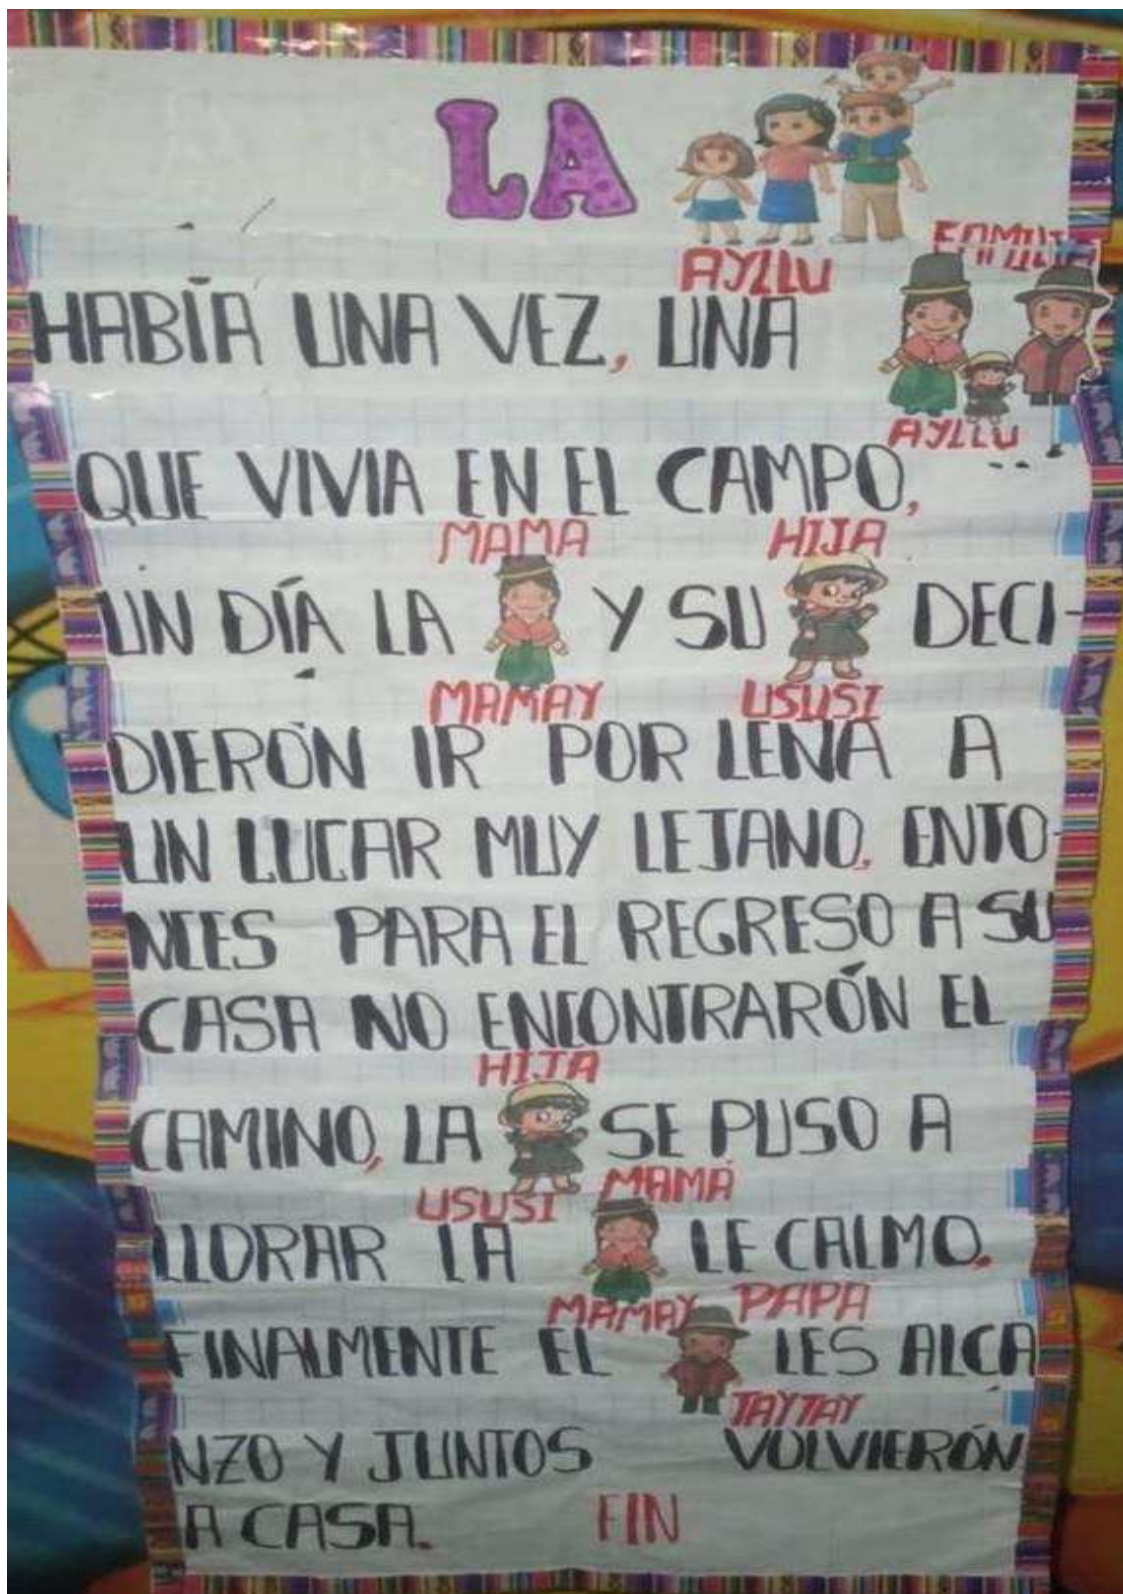 LA
AYLLU
FAMILIA
HABÍA UNA VEZ, UNA
AYLLU
QUE VIVIA EN EL CAMPO,
MAMA HIJA
UN DÍA LA Y SU DECI-
MAMAY USUSI
DIERÓN IR POR LEÑA A
UN LUGAR MUY LEJANO, ENTO-
NCES PARA EL REGRESO A SU
CASA NO ENCONTRARÓN EL
HIJA
CAMINO, LA SE PUSO A
USUSI MAMÁ
LLORAR LA LE CALMO.
MAMAY PAPA
FINALMENTE EL LES ALCA
TAYTAY
NZO Y JUNTOS VOLVIERÓN
A CASA. FIN